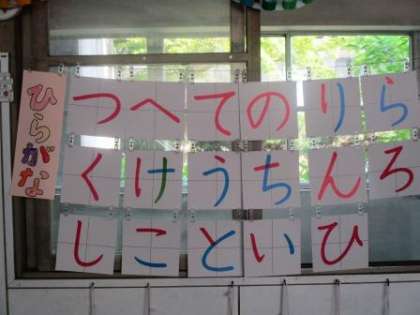 ひらがな
つへてのりら
くけうちんろ
しこといひ